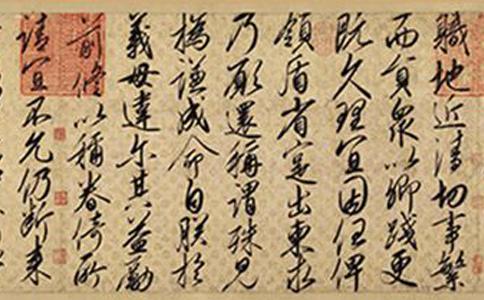 職地近清切事繁
而員衆以卿踐更
既久理宜因任俾
領盾省寔出柬求
乃願還稱謂殊見
撝謙成命自朕於
義毋違爾其益勵
前修以稱眷倚所
請宜不允仍斷來